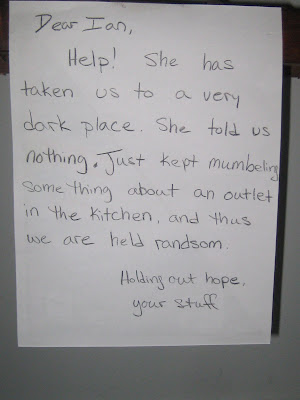 Dear Ian,
Help! She has
taken us to a very
dark place. She told us
nothing. Just kept mumbeling
something about an outlet
in the kitchen, and thus
we are held randsom.
Holding out hope,
your stuff